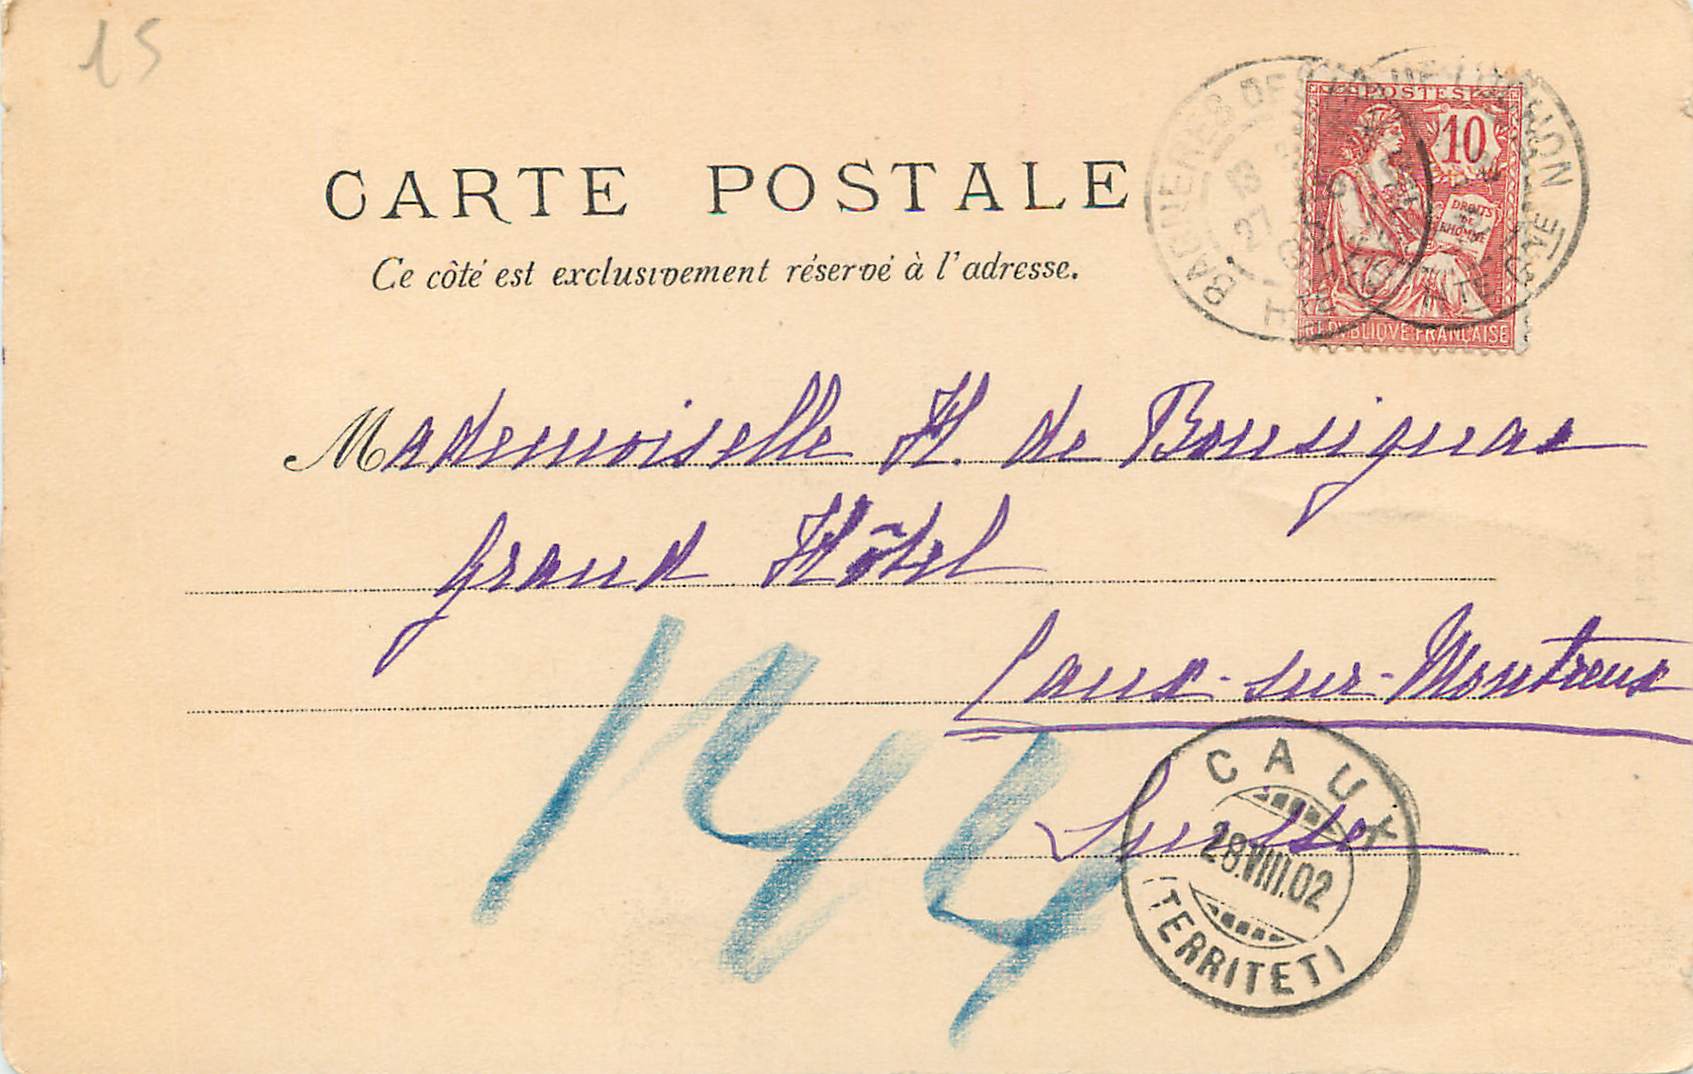 15
POSTES
10
DROITS
DE
L'HOMME
REPUBLIQUE FRANÇAISE
BAGNERES DE LUCHON
CARTE POSTALE
Ce côté est exclusivement réservé à l'adresse.
Mademoiselle H. de Bonsignac
Grand Hôtel
Caux-sur-Montreux
Suisse
144
CAUX
28.VIII.02
(TERRITET)